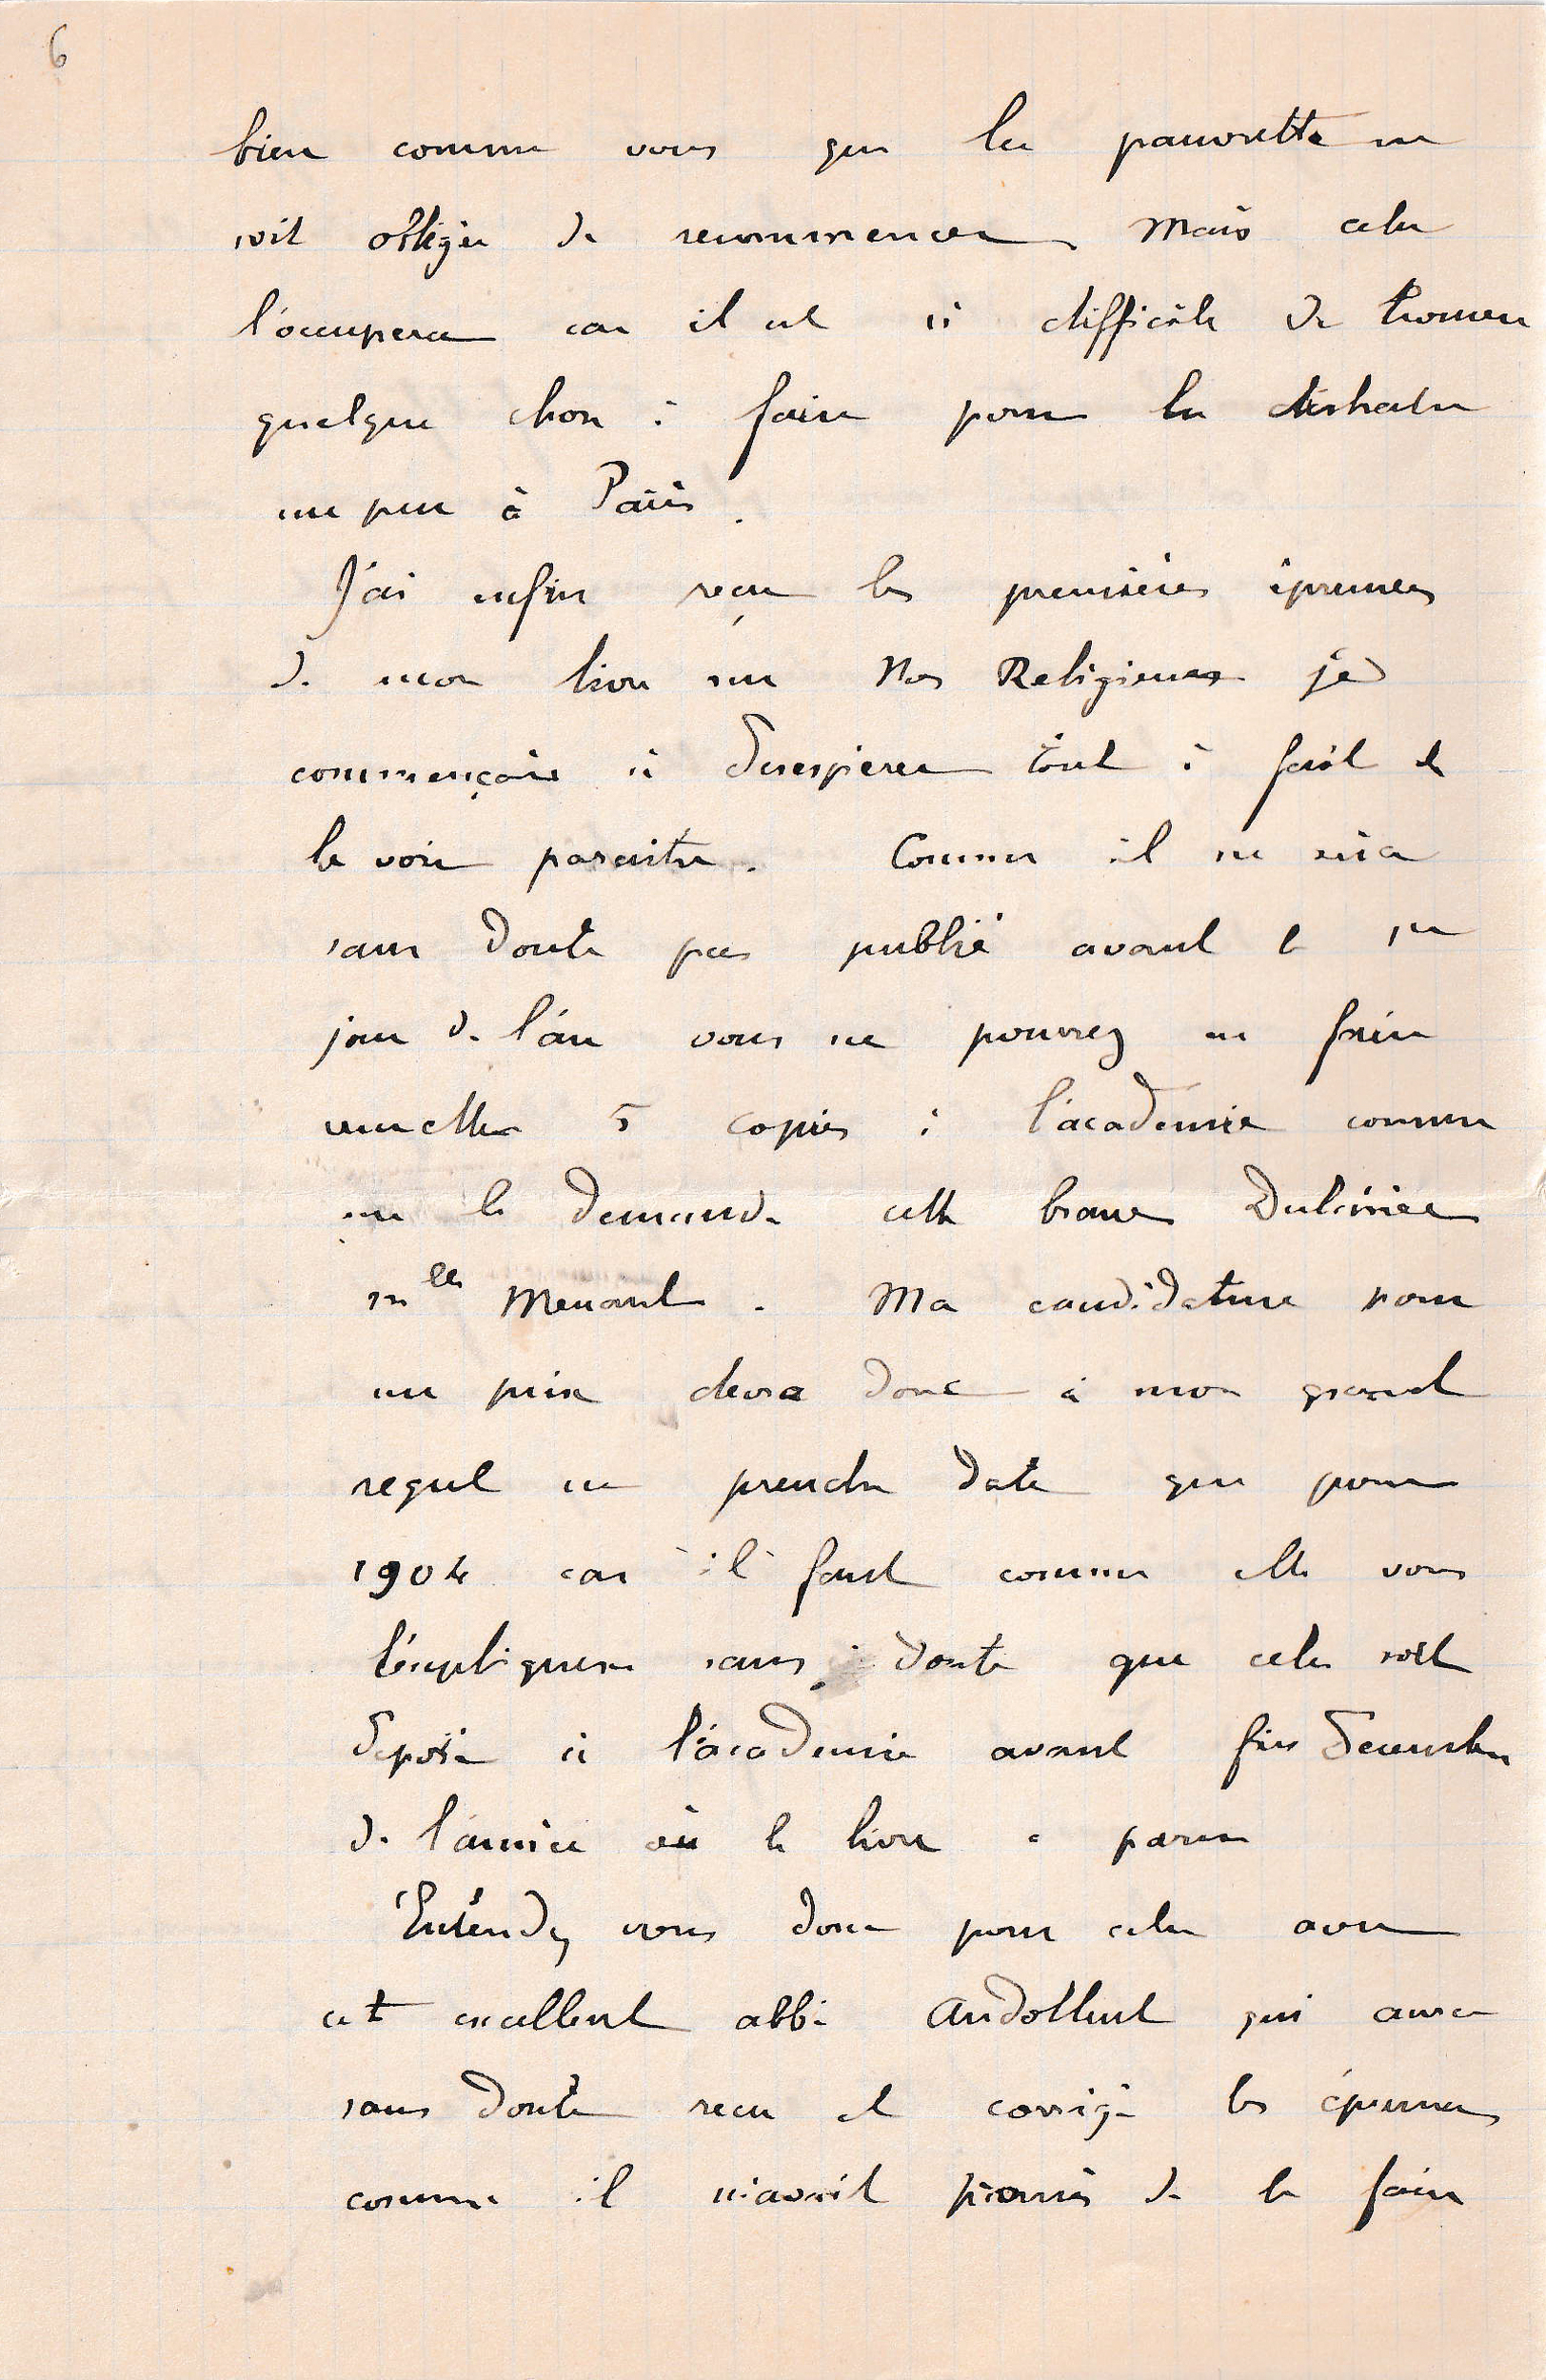 6
bien comme vous que la pauvrette ne
soit obligée de recommencer mais cela
l'occupera car il est si difficile de trouver
quelque chose à faire pour la distraire
un peu à Paris.
J'ai enfin reçu les premières épreuves
de mon livre sur Nos Religieuses je
commençais à désespérer tout à fait de
le voir paraitre. Comme il ne sera
sans doute pas publié avant le 1er
jour de l'an vous ne pourrez en faire
remettre 5 copies à l'académie comme
me le demande cette brave Dulcinée
Mlle Menant. Ma candidature pour
un prix devra donc à mon grand
regret ne prendre date que pour
1904 car il faut comme elle vous
l'expliquera sans doute que cela soit
déposé à l'académie avant fin décembre
de l'année où le livre a paru
Entendez vous donc pour cela avec
cet excellent abbé Audollent qui aura
sans doute recu et corrigé les épreuves
comme il m'avait promis de le faire